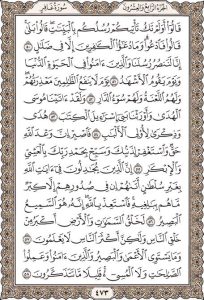 سورة غافر
الجزء الرابع والعشرون
قَالُوٓا۟ أَوَلَمْ تَكُ تَأْتِيكُمْ رُسُلُكُم بِٱلْبَيِّنَٰتِ قَالُوا۟ بَلَىٰ
قَالُوا۟ فَٱدْعُوا۟ وَمَا دُعَٰٓؤُا۟ ٱلْكَٰفِرِينَ إِلَّا فِى ضَلَٰلٍ ٥٠
إِنَّا لَنَنصُرُ رُسُلَنَا وَٱلَّذِينَ ءَامَنُوا۟ فِى ٱلْحَيَوٰةِ ٱلدُّنْيَا
وَيَوْمَ يَقُومُ ٱلْأَشْهَٰدُ ٥١ يَوْمَ لَا يَنفَعُ ٱلظَّٰلِمِينَ مَعْذِرَتُهُمْ
وَلَهُمُ ٱللَّعْنَةُ وَلَهُمْ سُوٓءُ ٱلدَّارِ ٥٢ وَلَقَدْ ءَاتَيْنَا مُوسَى
ٱلْهُدَىٰ وَأَوْرَثْنَا بَنِىٓ إِسْرَٰٓءِيلَ ٱلْكِتَٰبَ ٥٣ هُدًى
وَذِكْرَىٰ لِأُو۟لِى ٱلْأَلْبَٰبِ ٥٤ فَٱصْبِرْ إِنَّ وَعْدَ ٱللَّهِ
حَقٌّ وَٱسْتَغْفِرْ لِذَنۢبِكَ وَسَبِّحْ بِحَمْدِ رَبِّكَ بِٱلْعَشِىِّ
وَٱلْإِبْكَٰرِ ٥٥ إِنَّ ٱلَّذِينَ يُجَٰدِلُونَ فِىٓ ءَايَٰتِ ٱللَّهِ
بِغَيْرِ سُلْطَٰنٍ أَتَىٰهُمْ إِن فِى صُدُورِهِمْ إِلَّا كِبْرٌ
مَّا هُم بِبَٰلِغِيهِ فَٱسْتَعِذْ بِٱللَّهِ إِنَّهُۥ هُوَ ٱلسَّمِيعُ
ٱلْبَصِيرُ ٥٦ لَخَلْقُ ٱلسَّمَٰوَٰتِ وَٱلْأَرْضِ أَكْبَرُ مِنْ
خَلْقِ ٱلنَّاسِ وَلَٰكِنَّ أَكْثَرَ ٱلنَّاسِ لَا يَعْلَمُونَ ٥٧
وَمَا يَسْتَوِى ٱلْأَعْمَىٰ وَٱلْبَصِيرُ وَٱلَّذِينَ ءَامَنُوا۟ وَعَمِلُوا۟
ٱلصَّٰلِحَٰتِ وَلَا ٱلْمُسِىٓءُ قَلِيلًا مَّا تَتَذَكَّرُونَ ٥٨
٤٧٣